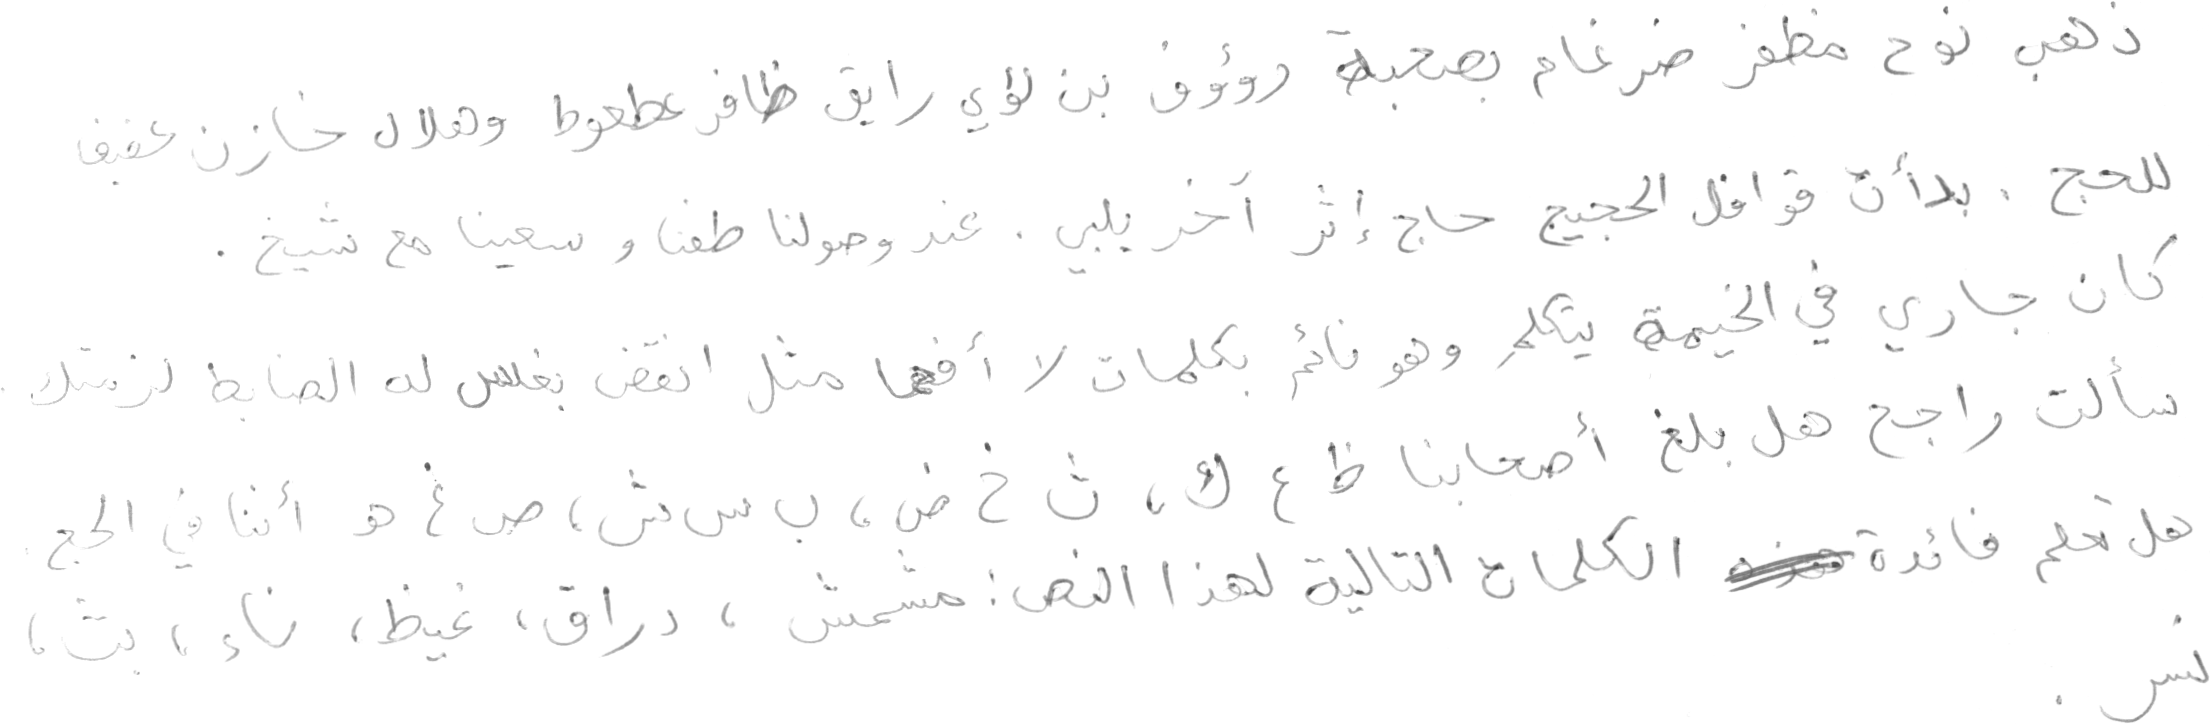 ذهب نوح مظفر ضرغام بصحبة رؤوف بن لؤي رايق ظافر عطعوط وهلال خازن عفيف
للحج . بدأت قوافل الحجيج حاج إثر آخر يلبي . عند وصولنا طفنا و سعينا مع شيخ .
كان جاري في الخيمة يتكلم وهو نائم بكلمات لا أفهمها مثل انقض بغلس له الضابط لزمتك .
سألت راجح هل بلغ أصحابنا ظ ع ك ، ث خ ض ، ب س ش ، ص غ هو أننا في الحج .
هل تعلم فائدة الكلمات التالية لهذا النص : مشمش ، دراق ، غيظ ، ناء ، بث ،
نسر .